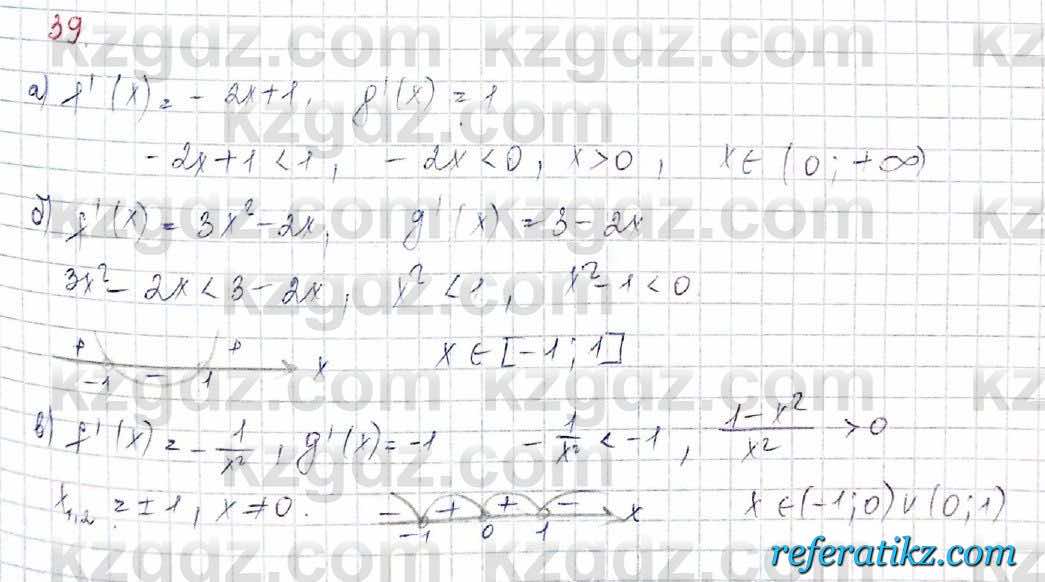 39.
а) f'(x) = -2x+1, g'(x) = 1
-2x+1<1, -2x<0, x>0, x∈(0;+∞)
б) f'(x) = 3x²-2x, g'(x) = 3-2x
3x²-2x<3-2x, x²<1, x²-1<0
+ - + -1 1 x x∈[-1;1]
в) f'(x) = -1/x², g'(x) = -1 -1/x² < -1, (1-x²)/x² >0
x₁,₂ = ±1, x≠0. - + + - -1 0 1 x x∈(-1;0)∪(0;1)
kzgdz.com
referatikz.com